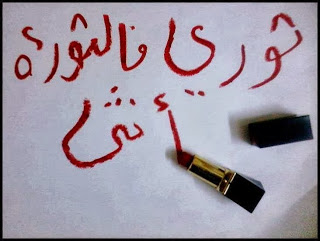 ثوري فالثورة
أنثى